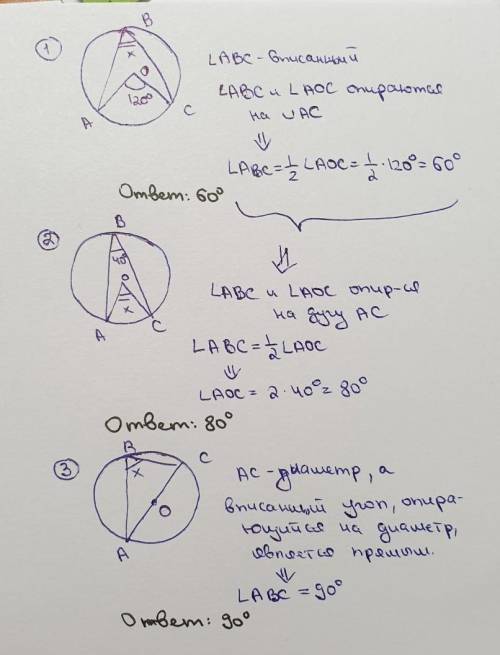 1
B
x
O
120°
A
C
∠ABC - вписанный
∠ABC и ∠AOC опираются
на ∪AC
⇓
∠ABC = 1/2 ∠AOC = 1/2 · 120° = 60°
Ответ: 60°
2
B
40°
O
x
A
C
⇓
∠ABC и ∠AOC опир-ся
на дугу AC
∠ABC = 1/2 ∠AOC
⇓
∠AOC = 2 · 40° = 80°
Ответ: 80°
3
B
C
x
O
A
AC - диаметр, а
вписанный угол, опира-
ющийся на диаметр,
является прямым.
⇓
∠ABC = 90°
Ответ: 90°